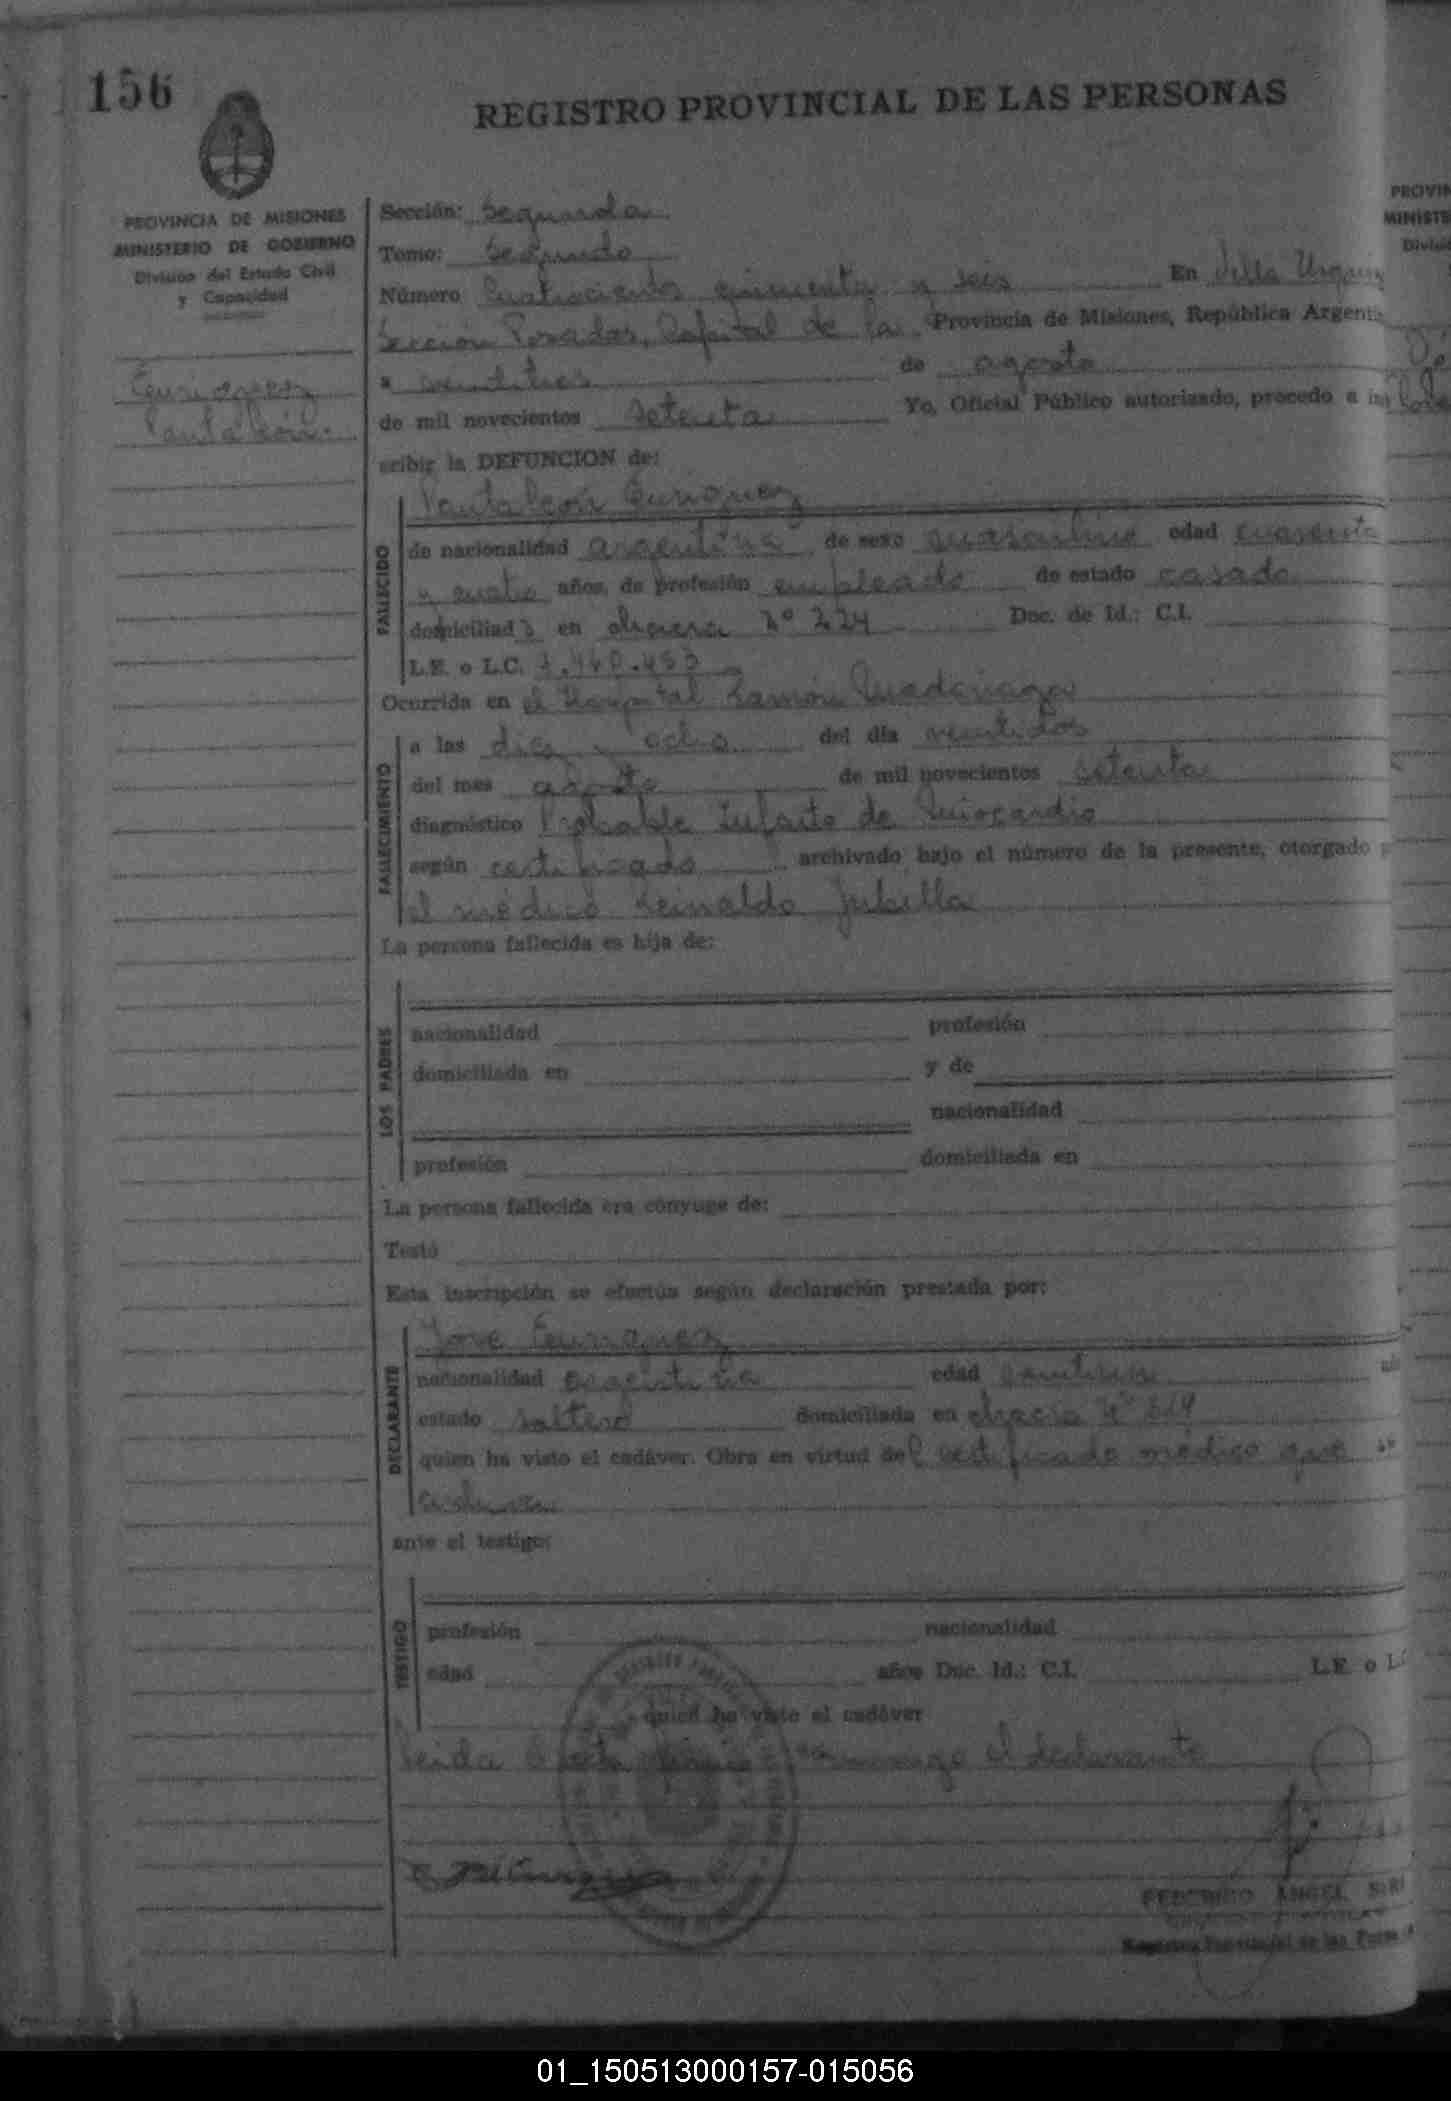 156
REGISTRO PROVINCIAL DE LAS PERSONAS
PROVINCIA DE MISIONES
MINISTERIO DE GOBIERNO
División del Estado Civil
y Capacidad
Pantaleón
Sección: Segunda
Tomo: Segundo
Número Cuatrocientos cincuenta y seis En Villa Urquiz
Sección Posadas, Capital de la Provincia de Misiones, República Argenti
a veintitres de agosto
de mil novecientos setenta Yo, Oficial Público autorizado, procedo a ins
cribir la DEFUNCION de:
FALLECIDO
Pantaleón
de nacionalidad argentina de sexo masculino edad cuarenta
y cuatro años, de profesión empleado de estado casado
domiciliado en chacra Nº 224 Doc. de Id.: C.I.
L.E. o L.C.
Ocurrida en el Hospital Ramón Madariaga
FALLECIMIENTO
a las diez y ocho del día veintidos
del mes agosto de mil novecientos setenta
diagnóstico Probable Infarto de Miocardio
según certificado archivado bajo el número de la presente, otorgado p
el médico Reinaldo
La persona fallecida es hija de:
LOS PADRES
nacionalidad profesión
domiciliada en y de
nacionalidad
profesión domiciliada en
La persona fallecida era cónyuge de:
Testó
Esta inscripción se efectúa según declaración prestada por:
DECLARANTE
José
nacionalidad argentina edad
estado soltero domiciliada en chacra Nº
quien ha visto el cadáver. Obra en virtud del certificado médico que se
archiva
ante el testigo:
TESTIGO
profesión nacionalidad
edad años Doc. Id.: C.I. L.E. o L.C
quien ha visto el cadáver
Leida el acta firma conmigo el declarante
FEDERICO ANGEL
Registro Provincial de las Perso
PROVIN
MINISTE
Divisió
01_150513000157-015056